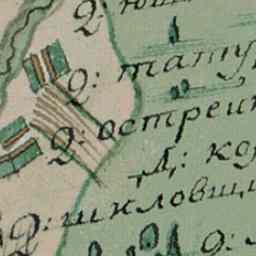 Д: юш
Д: тату
Д: острец
Д: ко
Д: шкловщи
Д: